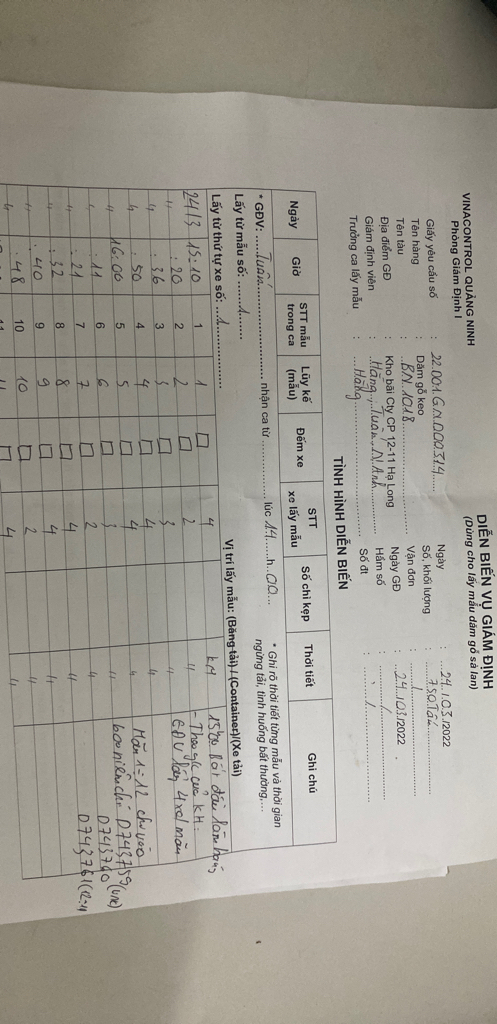 VINACONTROL QUẢNG NINH
Phòng Giám Định I
DIỄN BIẾN VỤ GIÁM ĐỊNH
(Dùng cho lấy mẫu dăm gỗ sà lan)
Giấy yêu cầu số : 22.001.G.N.000314 Ngày : 24/03/2022
Tên hàng : Dăm gỗ keo Số, khối lượng : 750 Tấn
Tên tàu : BN.1018 Vận đơn : /
Địa điểm GĐ : Kho bãi Cty CP 12-11 Hạ Long Ngày GĐ : 24/03/2022
Giám định viên : Hằng, Tuân, N.Anh Hầm số : /
Trưởng ca lấy mẫu : Hằng Số đt :
TÌNH HÌNH DIỄN BIẾN
Ngày Giờ STT mẫu trong ca Lũy kế (mẫu) Đếm xe STT xe lấy mẫu Số chì kẹp Thời tiết Ghi chú
* GĐV: Tuân nhận ca từ lúc 14 h 00 * Ghi rõ thời tiết từng mẫu và thời gian ngừng tải, tình huống bất thường....
Lấy từ mẫu số: 1
Lấy từ thứ tự xe số: 1 Vị trí lấy mẫu: (Băng tải) / (Container)/(Xe tải)
24/3 15:10 1 1 □ 4 KM
" :20 2 2 □ 2 "
" :36 3 3 □ 3 "
" :50 4 4 □ 4 "
" 16:00 5 5 □ 4 "
" :11 6 6 □ "
" :21 7 7 □ 2 "
" :32 8 8 □ 4 "
" :40 9 9 □ 4 "
" :48 10 10 □ 2 "
" 11 11 □ 4 "
bắt đầu làm hàng
- Theo y/c của KH:
GĐV lấy 4 xe/mẫu
Mẫn 1=12 cho vào
bao niêm chì D743759
D743760
D743761